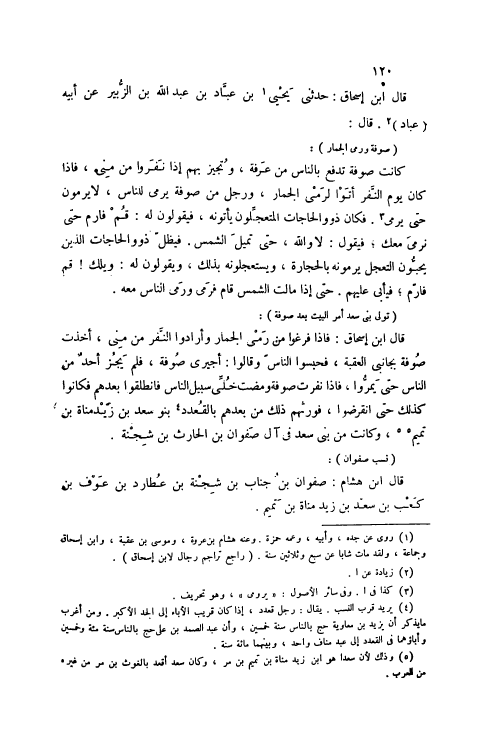 ١٢٠
قال ابْن إسحاق : حدثنى يَحْيَىٰ ١ بن عبَّاد بن عبد الله بن الزُّبير عن أبيه
( عباد )٢ . قال :
( صوفة ورمى الجمار ) :
كانت صوفة تدفع بالناس من عَرفة ، وتُجيز بهم إذا نَفَروا من مِنًى ، فاذا
كان يوم النَّفر أتَوْا لرَمْى الجمار ، ورجل من صوفة يرمى للناس ، لايرمون
حتَّى يرمى٣ . فكان ذووالحاجات المتعجِّلون يأتونه ، فيقولون له : قُمْ فارم حتَّى
نرمىَ معك ؛ فيقول : لاوالله ، حتَّى تميلَ الشمس . فيظلّ ذووالحاجات الذين
يحبُّون التعجل يرمونه بالحجارة ، ويستعجلونه بذلك ، ويقولون له : ويلك ! قم
فارْم ؛ فيأبى عليهم . حتَّى إذا مالت الشمس قام فرَمى ورَمى الناس معه .
( تولى بنى سعد أمر البيت بعد صوفة ) :
قال ابن إسحاق : فاذا فرغوا من رَمْى الجمار وأرادوا النَّفر من مِنى ، أخذت
صُوفة بجانبى العقبة ، فحبسوا الناس وقالوا : أجيزى صُوفة ، فلم يَجُز أحدٌ من
الناس حتَّى يَمرُّوا ، فاذا نفرت صوفة ومضت خُلِّى سبيل الناس فانطلقوا بعدهم فكانوا
كذلك حتَّى انقرضوا ، فورثهم ذلك من بعدهم بالقُعدد٤ بنو سعد بن زَيْد مناة بن
تميم ٥ ، وكانت من بنى سعد فى آل صَفوان بن الحارث بن شِجْنة .
( نسب صفوان ) :
قال ابن هشام : صفوان بن جناب بن شِجْنة بن عُطارد بن عَوْف بن
كَعْب بن سعْد بن زيد مناة بن تَميم .
(١) روى عن جده ، وأبيه ، وعمه حمزة . وعنه هشام بن عروة ، وموسى بن عقبة ، وابن إسحاق
وجماعة ، ولقد مات شابا عن سبع وثلاثين سنة . ( راجع تراجم رجال لابن إسحاق ) .
(٢) زيادة عن ا .
(٣) كذا فى ا . وفى سائر الأصول : « يرمون » ، وهو تحريف .
(٤) يريد قرب النسب . يقال : رجل قعدد ، إذا كان قريب الآباء إلى الجد الأكبر . ومن أغرب
مايذكر أن يزيد بن معاوية حج بالناس سنة خمسين ، وأن عبد الصمد بن على حج بالناس سنة مئة وخمسين
وآباؤهما فى القعدد إلى عبد مناف واحد ، وبينهما مائة سنة .
(٥) وذلك لأن سعدا هو ابن زيد مناة بن تميم بن مر ، وكان سعد أقعد بالغوث بن مر من غيره
من العرب .